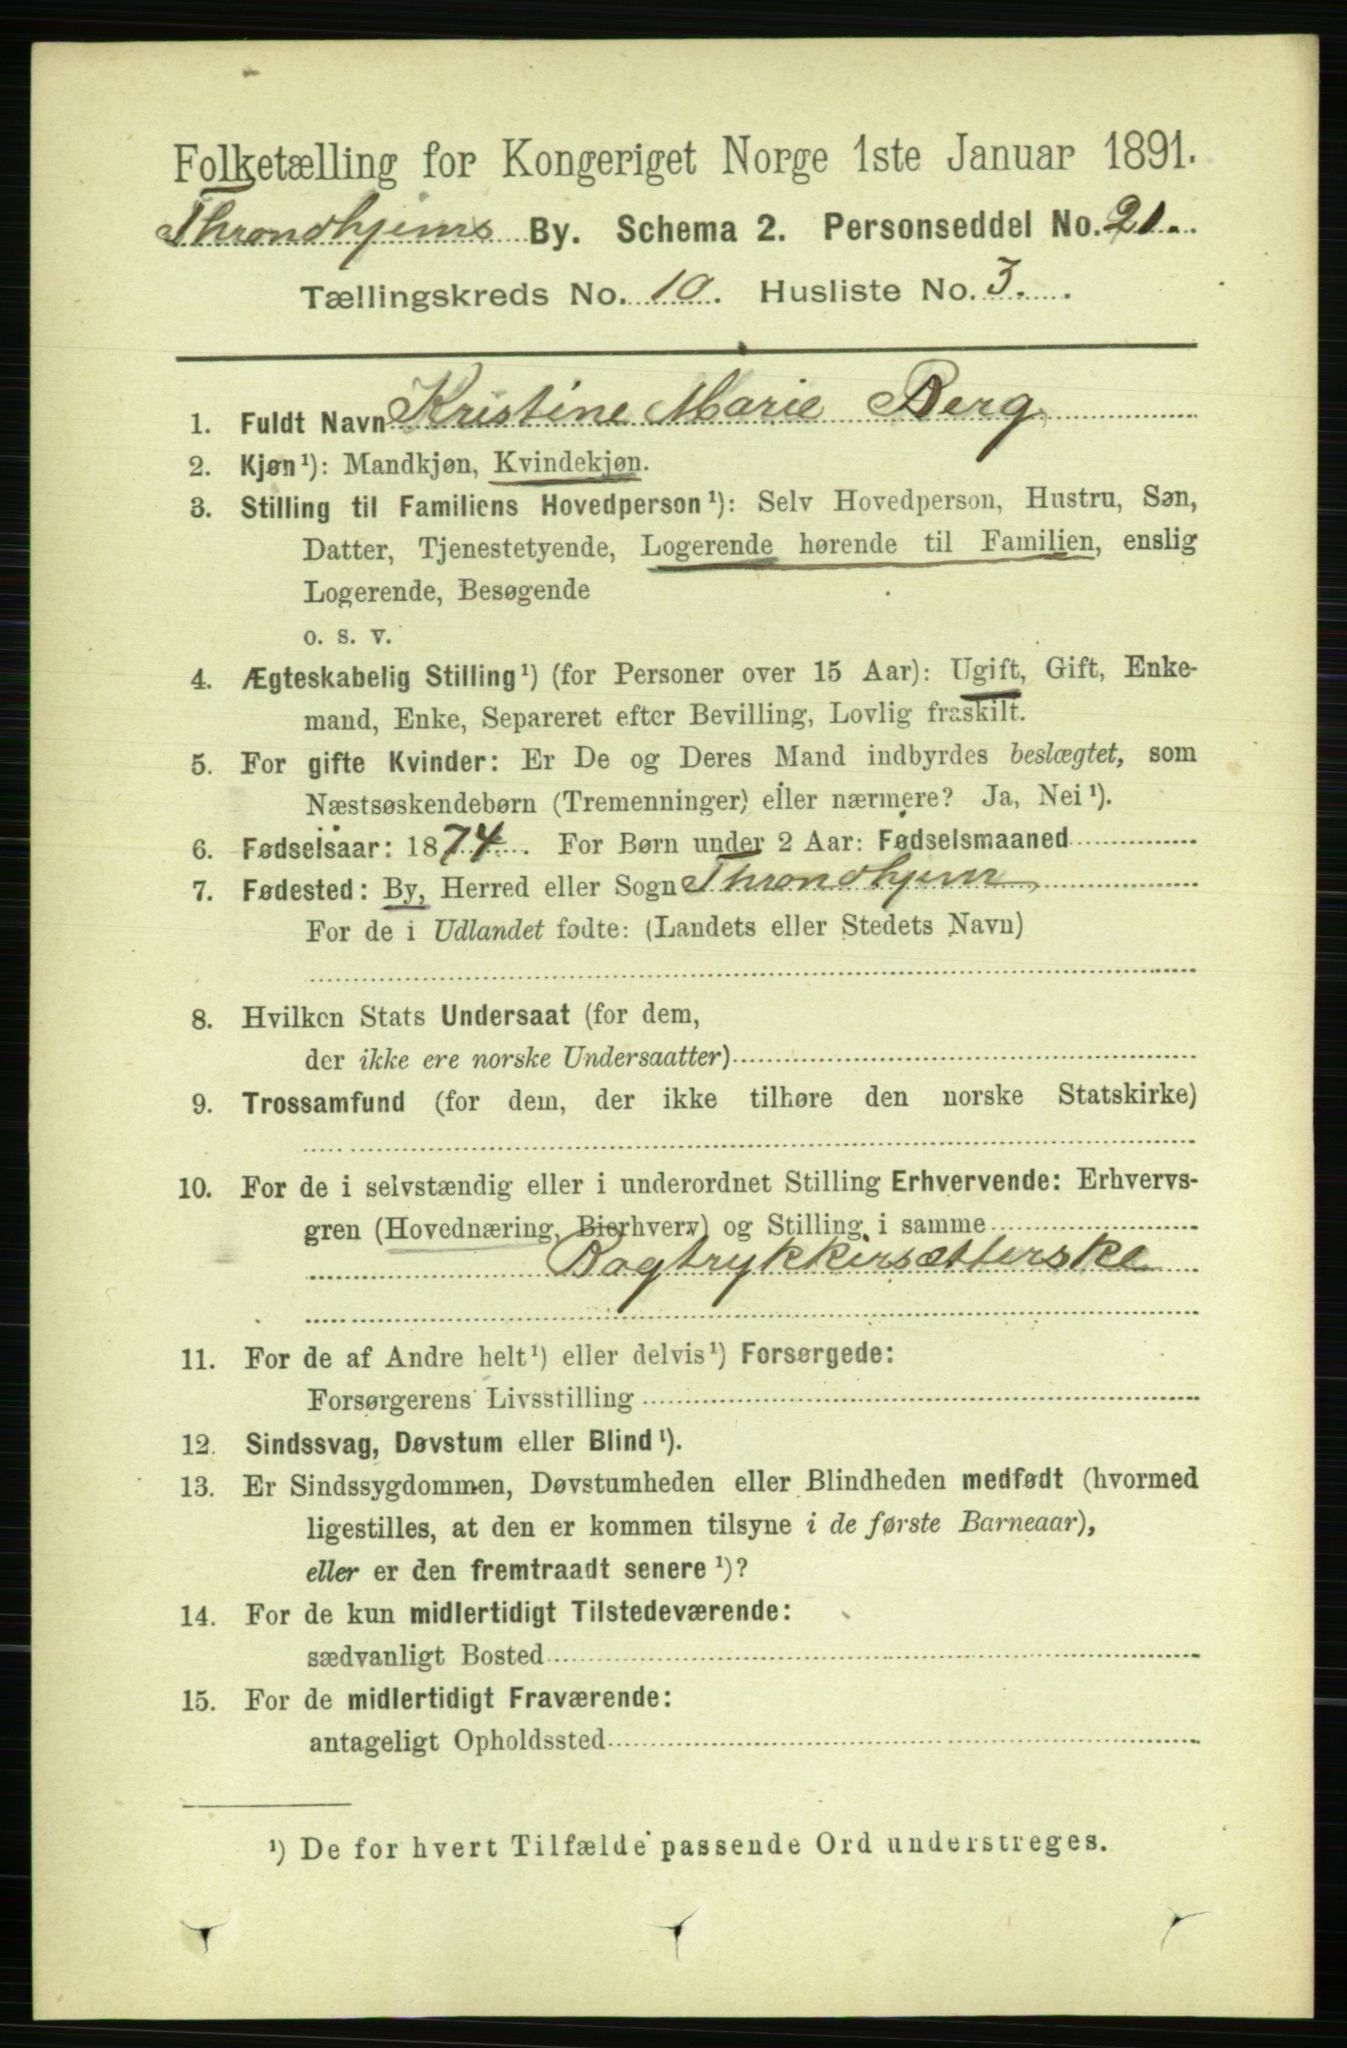 Folketælling for Kongeriget Norge 1ste Januar 1891.
Throndhjems By. Schema 2. Personseddel No. 21.
Tællingskreds No. 10. Husliste No. 3.
1. Fuldt Navn Kristine Marie Berg
2. Kjøn¹): Mandkjøn, Kvindekjøn.
3. Stilling til Familiens Hovedperson¹): Selv Hovedperson, Hustru, Søn,
Datter, Tjenestetyende, Logerende hørende til Familien, enslig
Logerende, Besøgende
o. s. v.
4. Ægteskabelig Stilling¹) (for Personer over 15 Aar): Ugift, Gift, Enke-
mand, Enke, Separeret efter Bevilling, Lovlig fraskilt.
5. For gifte Kvinder: Er De og Deres Mand indbyrdes beslægtet, som
Næstsøskendebørn (Tremenninger) eller nærmere? Ja, Nei¹).
6. Fødselsaar: 1874. For Børn under 2 Aar: Fødselsmaaned
7. Fødested: By, Herred eller Sogn Throndhjem
For de i Udlandet fødte: (Landets eller Stedets Navn)
8. Hvilken Stats Undersaat (for dem,
der ikke ere norske Undersaatter)
9. Trossamfund (for dem, der ikke tilhøre den norske Statskirke)
10. For de i selvstændig eller i underordnet Stilling Erhvervende: Erhvervs-
gren (Hovednæring, Bierhverv) og Stilling i samme
Bogtrykkersætterske
11. For de af Andre helt¹) eller delvis¹) Forsørgede:
Forsørgerens Livsstilling
12. Sindssvag, Døvstum eller Blind¹).
13. Er Sindssygdommen, Døvstumheden eller Blindheden medfødt (hvormed
ligestilles, at den er kommen tilsyne i de første Barneaar),
eller er den fremtraadt senere¹)?
14. For de kun midlertidigt Tilstedeværende:
sædvanligt Bosted
15. For de midlertidigt Fraværende:
antageligt Opholdssted
¹) De for hvert Tilfælde passende Ord understreges.